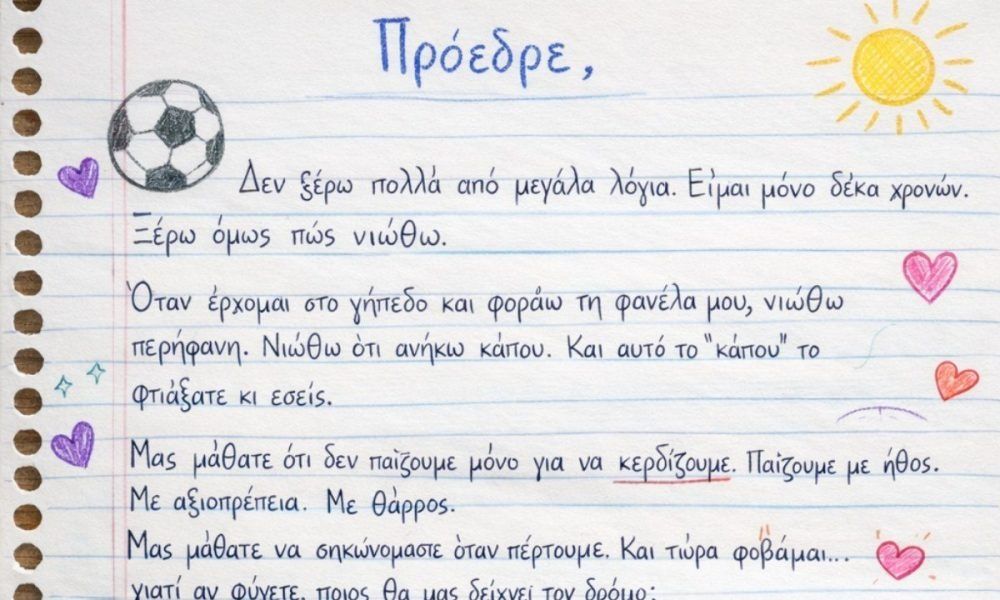 Πρόεδρε,
Δεν ξέρω πολλά από μεγάλα λόγια. Είμαι μόνο δέκα χρονών.
Ξέρω όμως πώς νιώθω.
Όταν έρχομαι στο γήπεδο και φοράω τη φανέλα μου, νιώθω
περήφανη. Νιώθω ότι ανήκω κάπου. Και αυτό το "κάπου" το
φτιάξατε κι εσείς.
Μας μάθατε ότι δεν παίζουμε μόνο για να κερδίζουμε. Παίζουμε με ήθος.
Με αξιοπρέπεια. Με θάρρος.
Μας μάθατε να σηκώνομαστε όταν πέρτουμε. Και τώρα φοβάμαι...
γιατί αν φύγετε, ποιος θα μας δείχνει τον δρόμο;